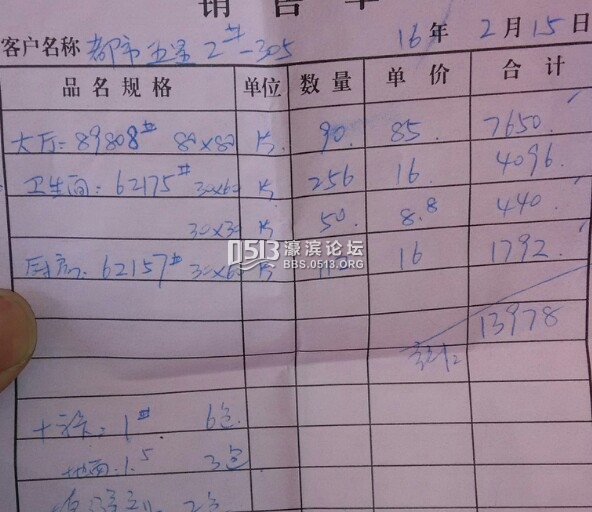 销售单
客户名称 都市五星 2# -305 16年 2月15日
品名规格 单位 数量 单价 合计
大厅: 89808# 80×80 片 90. 85. 7650.
卫生间: 62175# 30×60 片 256 16. 4096.
30×30 片 50. 8.8 440.
0513 濠滨论坛
BBS.0513.ORG
厨房: 62157# 30×60 片 16 1792.
13978
十字: 1# 6包
地面 1.5 3包
2包